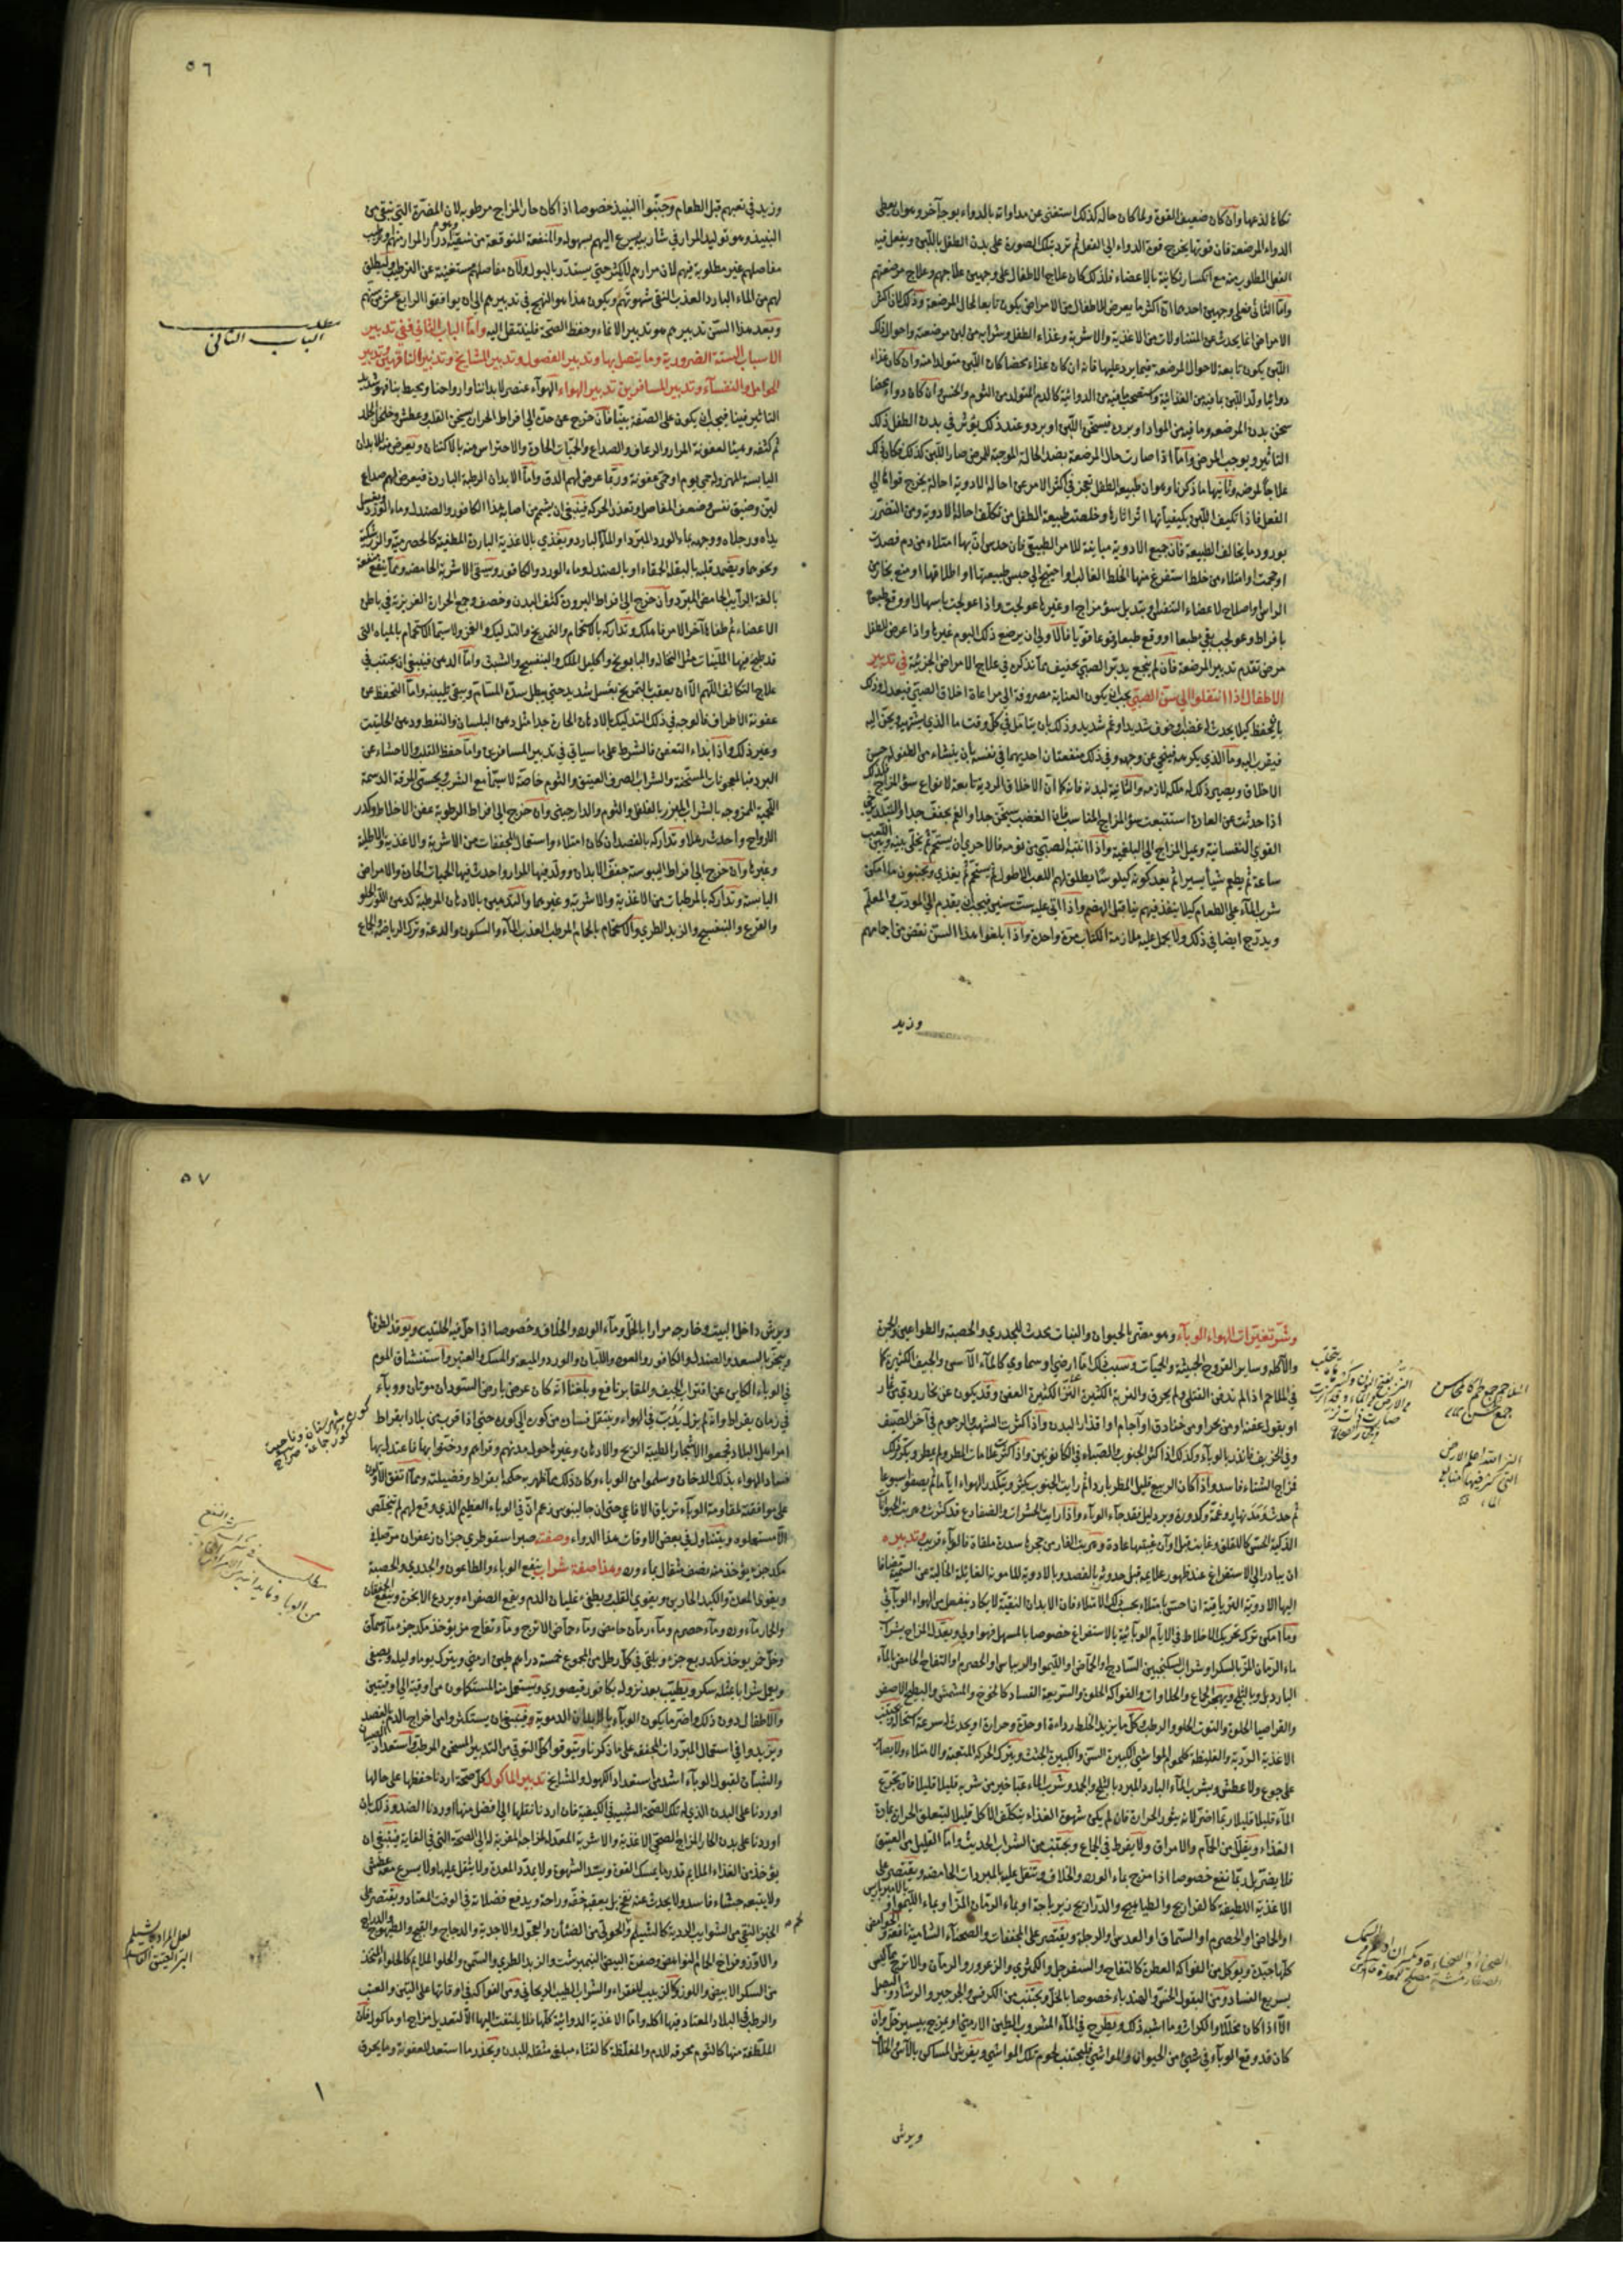 نكاءا لذعها وان كان ضعيف القوة ولما كان حاله كذلك استغنى عن مداواته بالدواء بوجه آخر وهو ان يعطى
الدواء المرضعة فان قوتها يخرج قوة الدواء الى الفعل ثم ترد تلك الصورة على بدن الطفل باللبن ويفعل فيه
الفعل المطلوب منه مع انكسار نكايته بالاعضاء فلذلك كان علاج الاطفال على وجهين علاجهم وعلاج مرضعتهم
واما الثانى فعلى وجهين احدهما ان اكثر ما يعرض للاطفال من الامراض يكون تابعا لحال المرضعة وذلك لان اكثر
الامراض انما يحدث عن المتناولات من الاغذية والاشربة وغذاء الطفل وشرابه من لبن مرضعته واحوال ذلك
اللبن يكون تابعة لاحوال المرضعة فيما يرد عليها فانه ان كان غذاء محضا كان اللبن متولدا منه وان كان غذاء
دوائيا ولد اللبن بما فيه من الغذائية كالدم المتولد من الثوم والخس وان كان دواء محضا
سخن بدن المرضعة وما فيه من المواد او برده فيسخن اللبن او يبرد وعند ذلك يؤثر في بدن الطفل ذلك
التاثير ويوجب المرض واما اذا صارت حال المرضعة بضد الحالة الموجبة للمرض صار اللبن كذلك فكان ذلك
علاجا لمرضه وثانيها ما ذكرنا وهو ان طبيعة الطفل تعجز في اكثر الامر عن احالة الادوية احالة يخرج قواها الى
الفعل فاذا تكيف اللبن بكيفياتها اثر اثارها وخلصت طبيعة الطفل من تكلف احالة الادوية ومن التضرر
بورود ما يخالف الطبيعة فان جميع الادوية مباينة للامر الطبيعي فان حدس ان بها امتلاء من دم فصدت
او حجمت او امتلاء من خلط استفرغ منها الخلط الغالب او احتيج الى حبس طبيعتها او اطلاقها او منع بخار من
الراس او اصلاح لاعضاء التنفس او تبديل سوء مزاج او غيرها عولجت واذا عولجت باسهال او وقع طبعا
بافراط وعولجت بقي بطبعها او وقع طبعا وقوعا قويا فالاولى ان يرضع ذلك اليوم غيرها واذا عرض للطفل
مرض تقدم تدبير المرضعة فان لم ينجع يدبر الصبي بحنيف مما نذكره في علاج الامراض الجزئية في تدبير
الاطفال اذا انتقلوا الى سن الصبى يجب ان يكون العناية مصروفة الى مراعاة اخلاق الصبي فيعدل وذلك
بان يحفظ كيلا يحدث له غضب او خوف شديد او غم شديد وذلك بان يتامل في كل وقت ما الذي يشتهيه ويحن اليه
فيقرب اليه وما الذي يكرهه فينحى عن وجهه وفي ذلك منفعتان احديهما في نفسه بان ينشاء من الطفولة حسن
الاخلاق ويصير ذلك له ملكة لازمة والثانية لبدنه فانه كما ان الاخلاق الردية تابعة لانواع سوء المزاج فكذلك
اذا حدثت عن العادة استتبعت سوء المزاج المناسب فان الغضب يسخن جدا والغم يجفف جدا والتبليد يرخى
القوى النفسانية ويميل المزاج الى البلغمية واذا انتبه الصبى من نومه فالاحرى ان يستحم ثم يخلى بينه وبين اللعب
ساعة ثم يطعم شيا يسيرا ثم يطلق لهم اللعب الاطول ثم يستحم ثم يغذى ويجتنبون ما امكن
شرب الماء على الطعام كيلا ينفذ فيهم نيا قبل الهضم واذا اتى عليه ست سنين فيجب ان يقدم الى المودب والمعلم
ويدرج ايضا في ذلك ولا يحمل عليه ملازمة الكتاب مرة واحدة واذا بلغوا هذا السن نقص من احمامهم
وزيد
٥٦
وزيد في تعبهم قبل الطعام وجنبوا النبيذ خصوصا اذا كان حار المزاج مرطوبه لان المضرة التى تتقى من
النبيذ وهو توليد المرار في شاربيه يسرع اليهم بسهولة والمنفعة المتوقعة من سقيه ادرار المرار منهم وترطيب
مفاصلهم غير مطلوبة فيهم لان مرارهم لا يكثر حتى يستدر بالبول ولان مفاصلهم مستغنية عن الترطيب وليطلق
لهم من الماء البارد العذب النقى شهوتهم ويكون هذا هو النهج في تدبيرهم الى ان يوافقوا الرابع عشر من سنهم
وبعد هذا السن تدبيرهم هو تدبير الانماء وحفظ الصحة فلينتقل اليه واما الباب الثانى ففى تدبير
الاسباب الستة الضرورية وما يتصل بها وتدبير الفصول وتدبير المشايخ وتدبير الناقهين وتدبير
الحوامل والنفساء وتدبير المسافرين تدبير الهواء الهواء عنصر لابداننا وارواحنا ويحيط بنا فهو شديد
التاثير فينا فيجب ان يكون على الصفة بينا فان خرج عن حده الى افراط الحر ان يسخن القلب وعطش وخلخل الجلد
ثم كثفه وهيأ لعفونة المرار والرعاف والصداع والحميات الحادة والاحتراس منه بالاكتنان ويعرض منه للابدان
اليابسة المهزولة حمى يوم او حمى عفونة وربما عرض لهم الدق واما الابدان الرطبة الباردة فيعرض لهم صداع
لين وضيق نفس وضعف المفاصل وتعذر الحركة فينبغي ان يشم من اصابه هذا الكافور والصندل وماء الورد ويغسل
يداه ورجلاه ووجهه بماء الورد المبرد او الماء البارد ويغذي بالاغذية الباردة المطفئة كالحصرمية والزرشكية
ونحوهما ويضمد قلبه بالبقلة الحمقاء او بالصندل وماء الورد والكافور ويسقى الاشربة الحامضة ومما ينفع منفعة
بالغة الرائب الحامض المبرد وان خرج الى افراط البرودة كثف البدن وخصف وجمع الحرارة الغريزية في باطن
الاعضاء ثم طفاها آخر الامر فاهلك وتداركه بالاستحمام والتمريخ والتدليك والغمز ولا سيما الاستحمام بالمياه التى
قد طبخ فيها الملينات مثل النخالة والبابونج واكليل الملك والبنفسج والشبث واما الدهن فينبغي ان يجتنب في
علاج التكاثف اللهم الا ان يعقب التمريخ بغسل شديد حتى يبطل سده المسام ويبقى تليينه واما التحفظ عن
عفونة الاطراف فالوجه في ذلك التدليك بالادهان الحارة جدا مثل دهن البلسان والنفط ودهن الحلتيت
وغير ذلك واذا بداء التعفن فالشرط على ما سياتي في تدبير المسافرين واما حفظ القلب والاحشاء عن
البرد فبالمعجونات المسخنة والشراب الصرف العتيق والثوم خاصة لا سيما مع الشرب ويحسى المرقة الدسمة
اللحمية الممزوجة بالشراب المبزر بالفلفل والثوم والدارجيني وان خرج الى افراط الرطوبة عفن الاخلاط وكدر
الارواح واحدث رهلا وتداركه بالفصد ان كان امتلاء واستعمال المجففات من الاشربة والاغذية والاطلية
وغيرها وان خرج الى افراط اليبوسة جفف الابدان وولد فيها المرار واحدث فيها الحميات الحادة والامراض
اليابسة وتداركه بالمرطبات من الاغذية والاشربة وغيرهما والتدهين بالادهان المرطبة كدهن اللوز الحلو
والقرع والبنفسج والزبد الطري والاستحمام بالحمام المرطب العذب الماء والسكون والدعة وترك الرياضة والجماع
مطلب
الباب الثانى
وشر تغيرات الهواء الوباء وهو مضر بالحيوان والنبات يحدث الجدري والحصبة والطواعين والجمرة
والآكلة وساير القروح الخبيثة والحميات وسبب ذلك اما ارضى او سماوي كالماء الآسن والجيف الكثيرة كما
في الملاحم اذا لم تدفن القتلى ولم يحرق والتربة الكثيرة النز الكثيرة العفن وقد يكون عن بخار ردي من غار
او بقول عفنة او من خنادق او آجام او اقذار البدن واذا كثرت الشهب والرجوم في آخر الصيف
وفى الخريف فانذر بالوباء وكذلك اذا كثر الجنوب والصباء في الكانونين واذا كثرت علامات المطر ولم يمطر وتكرر ذلك
فمزاج الشتاء فاسد واذا كان الربيع قليل المطر باردا ثم رايت الجنوب يكثر ويتكدر الهواء اياما ثم يصفو اسبوعا
ثم حدث ومد نهار وغمة وكدورة وبرد ليل فقد جاء الوباء واذا رايت الحشرات والضفادع قد كثرت وهربت الحيوانات
الذكية الحس كاللقلق وغابت قبل اوان غيبتها عادة وهربت الفار من جحرها سدرة ملقاة فالوباء قريب وتدبيره
ان يبادر الى الاستفراغ عند ظهور علايمه قبل حدوثه بالفصد وبالادوية المامونة الغائلة الخالية من السمية مضافا
اليها الادوية الترياقية اذا حس بامتلاء بحسب ذلك الامتلاء فان الابدان النقية لا يكاد ينفعل من الهواء الوبائى
وما امكن ترك تحريك الاخلاط في الايام الوبائية بالاستفراغ خصوصا بالمسهل فهو اولى ويعدل المزاج بشراب
ماء الرمان المز بالسكر او شراب السكنجبين الساذج او الحماض او الليمو او الريباس او الحصرم او التفاح الحامض بالماء
البارد بل وبالثلج ويهجر الجماع والحلاوات والفواكه الحلوة والسريعة الفساد كالخوخ والمشمش والبطيخ الاصفر
والقراصيا الحلوة والتوت الحلو والرطب وكل ما يزيد الخلط رداءة او حدة وحرارة او يحدث له سرعة استحالة ويجتنب
الاغذية الردية والغليظة كلحوم المواشى الكبيرة السن والكبيرة الجثث ويترك الحركة المتعبة والامتلاء والايصبر
على جوع ولا عطش ويشرب الماء البارد المبرد بالثلج والجمد وشرب الماء عبا خير من شربه قليلا قليلا فان تجرع
الماء قليلا قليلا ربما اضر لانه يثور الحرارة فان لم يكن شهوة الغذاء يتكلف الاكل قليلا ليتعلق الحرارة بمادة
الغذاء ويقلل من الحمام والامراق ولا يفرط في الجماع ويجتنب من الشراب الحديث واما القليل من العتيق
فلا يضر بل ربما نفع خصوصا اذا مزج بماء الورد والخلاف ويتنقل عليه بالمبردات الحامضة ويقتصر على
الاغذية اللطيفة كالفراريج والطياهيج والدراريج زيرباجة او بماء الرمان المز او بماء الليمو او بالاميرباريس
او الحماض او الحصرم او السماق او العدس او الرجلة ويقتصر على المجففات والصحناة الشامية نافعة والحوامض
كلها جيدة ويؤكل من الفواكه العطرة كالتفاح والسفرجل والكمثرى والزعرور والرمان والاترج مما ليس
بسريع الفساد ومن البقول الخس والهندباء خصوصا بالخل ويجتنب من الكرفس والجرجير والرشاد والبصل
الا اذا كان مخللا والكراث وما اشبه ذلك ويطرح في الماء المشروب الطين الارمني او يمزج بيسير خل وان
كان قد وقع الوباء في شئ من الحيوان والمواشى فليجتنب لحوم تلك المواشي ويفرش المساكن بالآس والخلاف
ويرش
٥٧
ويرش داخل البيت وخارجه مرارا بالخل وماء الورد والخلاف وخصوصا اذا حل فيه الحلتيت ويوقد الطرفا
ويبخر بالسعد والصندل والكافور والعود واللبان والورد والميعة والمسك والعنبر واستنشاق الموم
في الوباء الكاين عن اقتراب الجيف والمقابر نافع وبلغنا انه كان عرض بارض السودان موتان ووباء
في زمان بقراط وانه لم يزل يدب في الهواء وينتقل فساده من كورة الى كورة حتى اذا قرب من بلاد بقراط
امر اهل البلاد فجمعوا الاشجار الطيبة الريح والادهان وغيرها حول مدنهم وقراهم ودخنوا بها فاعتدل بها
فساد الهواء بذلك الدخان وسلموا من الوباء وكان ذلك مما ظهر به حكمة بقراط وفضيلته ومما اتفق الاولون
على موافقته لمقاومة الوباء ترياق الافاعي حتى ان جالينوس زعم ان في الوباء العظيم الذي وقع لهم لم يتخلص
الا مستعملوه ويتناول في بعض الاوقات هذا الدواء وصفته صبر اسقوطري جزان زعفران مر صاف
مكد جزء يؤخذ منه نصف مثقال بماء ورد وهذا صفة شراب ينفع الوباء والطاعون والجدري والحصبة
ويقوي المعدة والكبد الحارين ويقوي القلب ويطفئ غليان الدم ويقمع الصفراء ويردع الابخرة وينفع الخفقان
والخمار ماء ورد وماء حصرم وماء رمان حامض وماء حماض الاترج وماء تفاح مز يؤخذ مكد جزء ماء سمان
وخل خمر يوخذ مكد ربع جزء ويلقى في كل رطل من المجموع خمسة دراهم طين ارمني ويترك يوما وليلة ويصفى
ويعمل شرابا بمثله سكر ويطيب بعد نزوله بكافور قيصوري ويستعمل منه المستكملون من اوقية الى اوقيتين
والاطفال دون ذلك واضر ما يكون الوباء بالابدان الدموية وينبغي ان يستكثروا من اخراج الدم بالفصد
ويزيدوا في استعمال المبردات المجففة على ما ذكرنا ويتوقوا كل التوقى من التدبير المسخن المرطب واستعداد الصبيان
والشبان لقبول الوباء اشد من استعداد الكهول والمشايخ تدبير الماكول كل صحة اردنا حفظها على حالها
اوردنا على البدن الذي له تلك الصحة الشبيه في الكيفية فان اردنا نقلها الى افضل منها اوردنا الضد وذلك بان
اوردنا على بدن الحار المزاج الصحى الاغذية والاشربة المعدلة لمزاجه المقربة له الى الصحة التى في الغاية فينبغي ان
يؤخذ من الغذاء الملايم قدر ما يمسك القوة ويسد الشهوة ولا يمدد المعدة ولا يثقل عليها ولا يسرع معه عطش
ولا يتبعه جشاء فاسد ولا يحدث عنه نفخ بل يعقبه خفة وراحة ويدفع فضلاته في الوقت المعتاد ويقتصر على
الخبز النقى من الشوايب الردية كالشيلم والحولى من الضئان والعجول والاجدية والدجاج والقبج والطيهوج والدراج
والاوز وفراخ الحمام النواهض وصفرة البيض النيمبرشت والزبد الطري والسمن والحلو الملايم كالحلواء المتخذ
من السكر الابيض واللوز وكالزبيب للفقراء والشراب الطيب الريحانى ومن الفواكه في اوقاتها على التين والعنب
والرطب في البلاد المعتاد فيها اكله واما الاغذية الدوائية كلها فلا يلتفت اليها الا لتعديل مزاج او ماكول فان
الملطفة منها كالثوم محرقة للدم والمغلظة كالقثاء مبلغمة مثقلة للبدن ويحذر ما استعد للعفونة وما يحرق